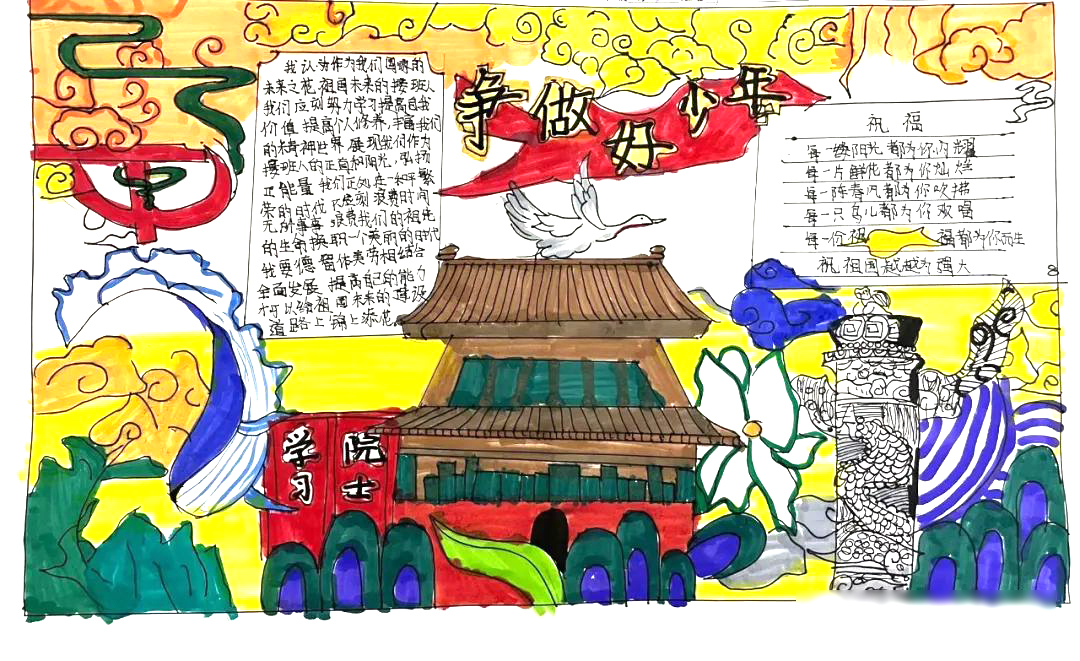 争做好少年
我认为作为我们国家的
未来之花,祖国未来的接班人
我们应刻努力学习提高自我
价值 提高个人修养,丰富我们
的精神世界 展现我们作为
接班人的正直和阳光,弘扬
正能量 我们正处在一个和平繁
荣的时代 不应刻浪费时间
无所事事 浪费我们的祖先
的生命换取一个美丽的时代
我要德智作表劳相结合
全面发展 提高自己的能力
才可以给祖国未来的建设
道路上锦上添花
祝福
每一缕阳光都为你闪耀
每一片鲜花都为你灿烂
每一阵春风都为你吹拂
每一只鸟儿都为你欢唱
每一份祝福都为你而生
祝祖国越越为强大
学习
院士